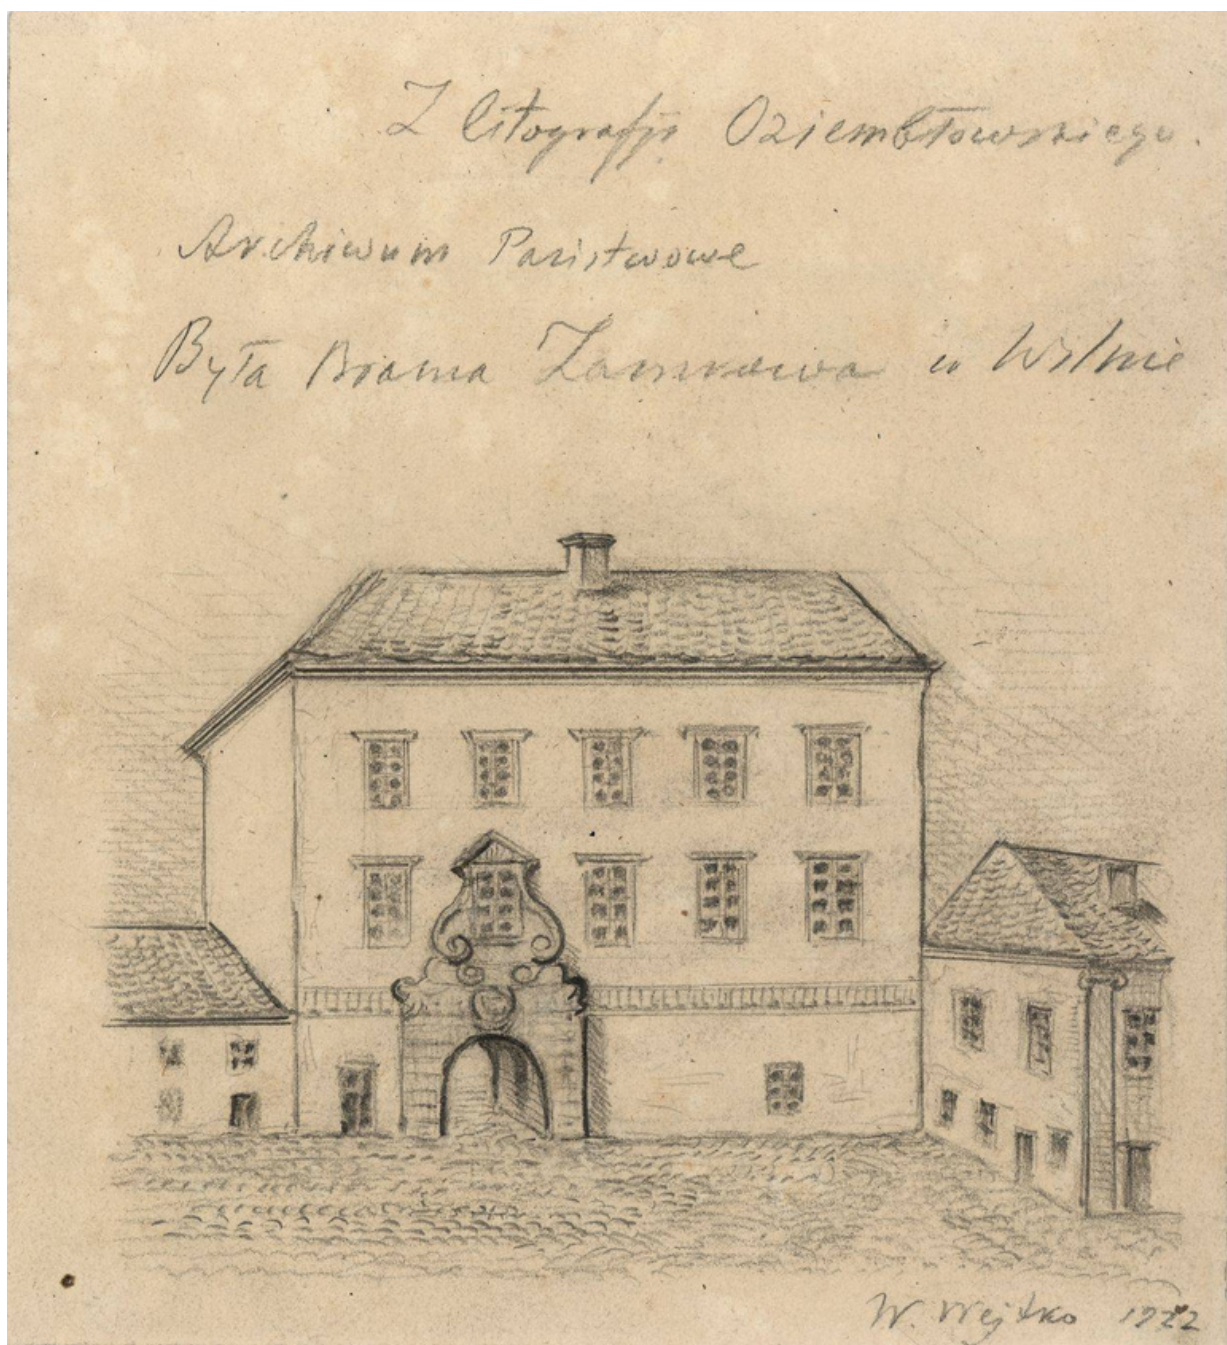 Z litografji Oziembłowskiego.
Archiwum Państwowe
Była Brama Zamkowa w Wilnie
W. Wejtko 1922